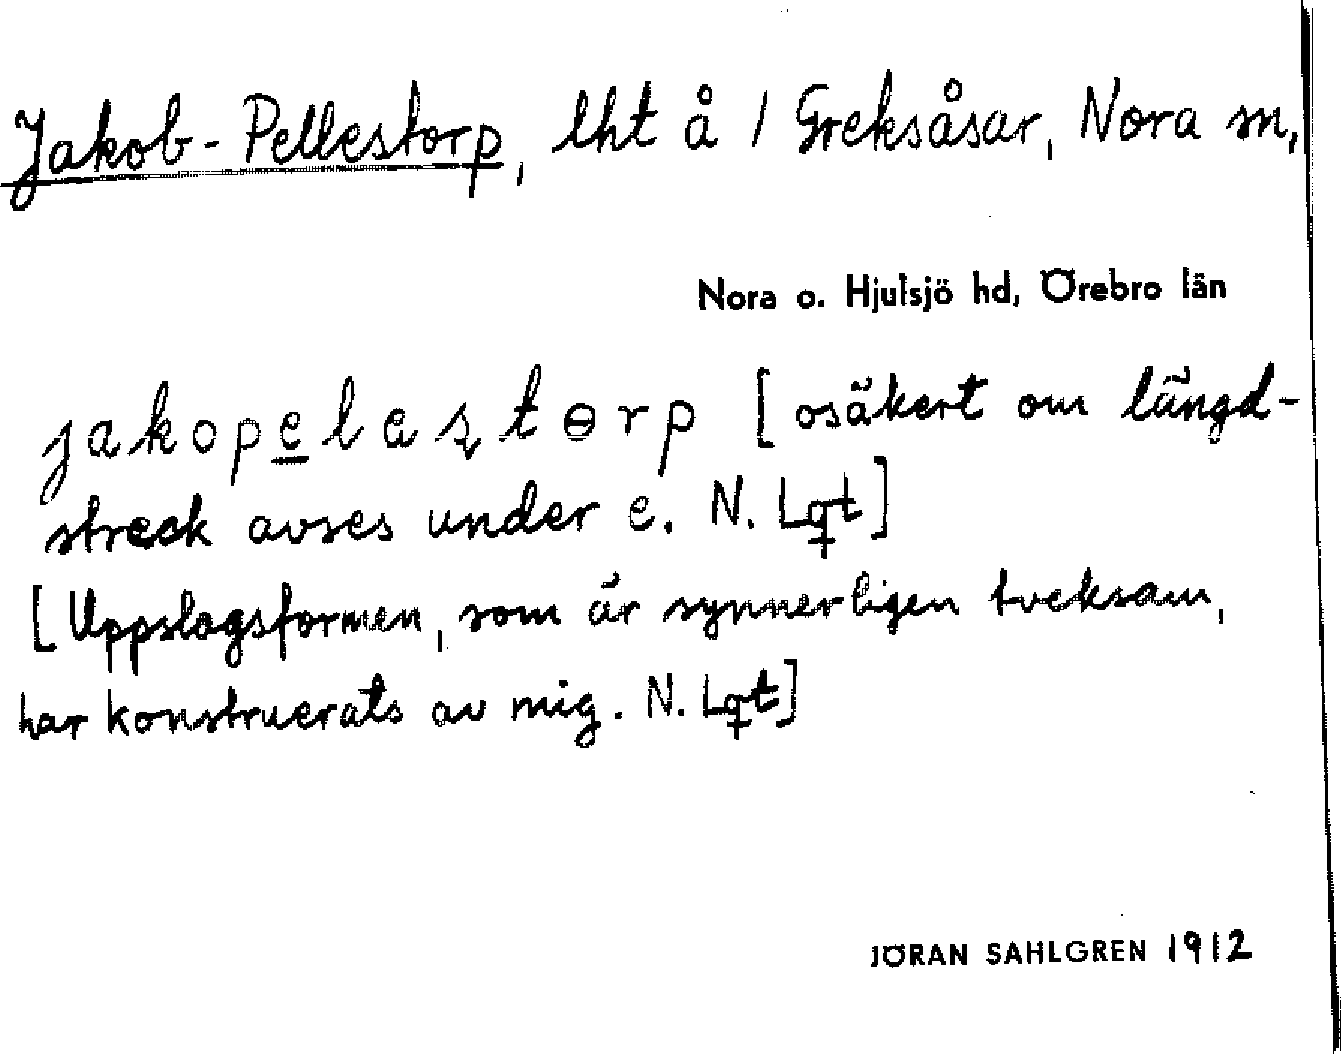 Jakob-Pellestorp, lht å / Greksåsar, Nora sn,
Nora o. Hjulsjö hd, Örebro län
jakopelastɵrp [osäkert om längd-
streck avses under e. N. Lqt]
[Uppslagsformen, som är synnerligen tveksam,
har konstruerats av mig. N. Lqt]
JÖRAN SAHLGREN 1912